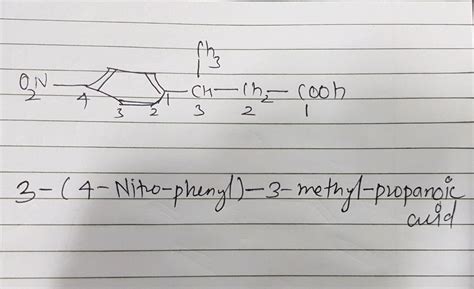 CH3
O2N 4 3 2 1 CH 3 CH2 2 COOH 1
3-(4-Nitro-phenyl)-3-methyl-propanoic
acid